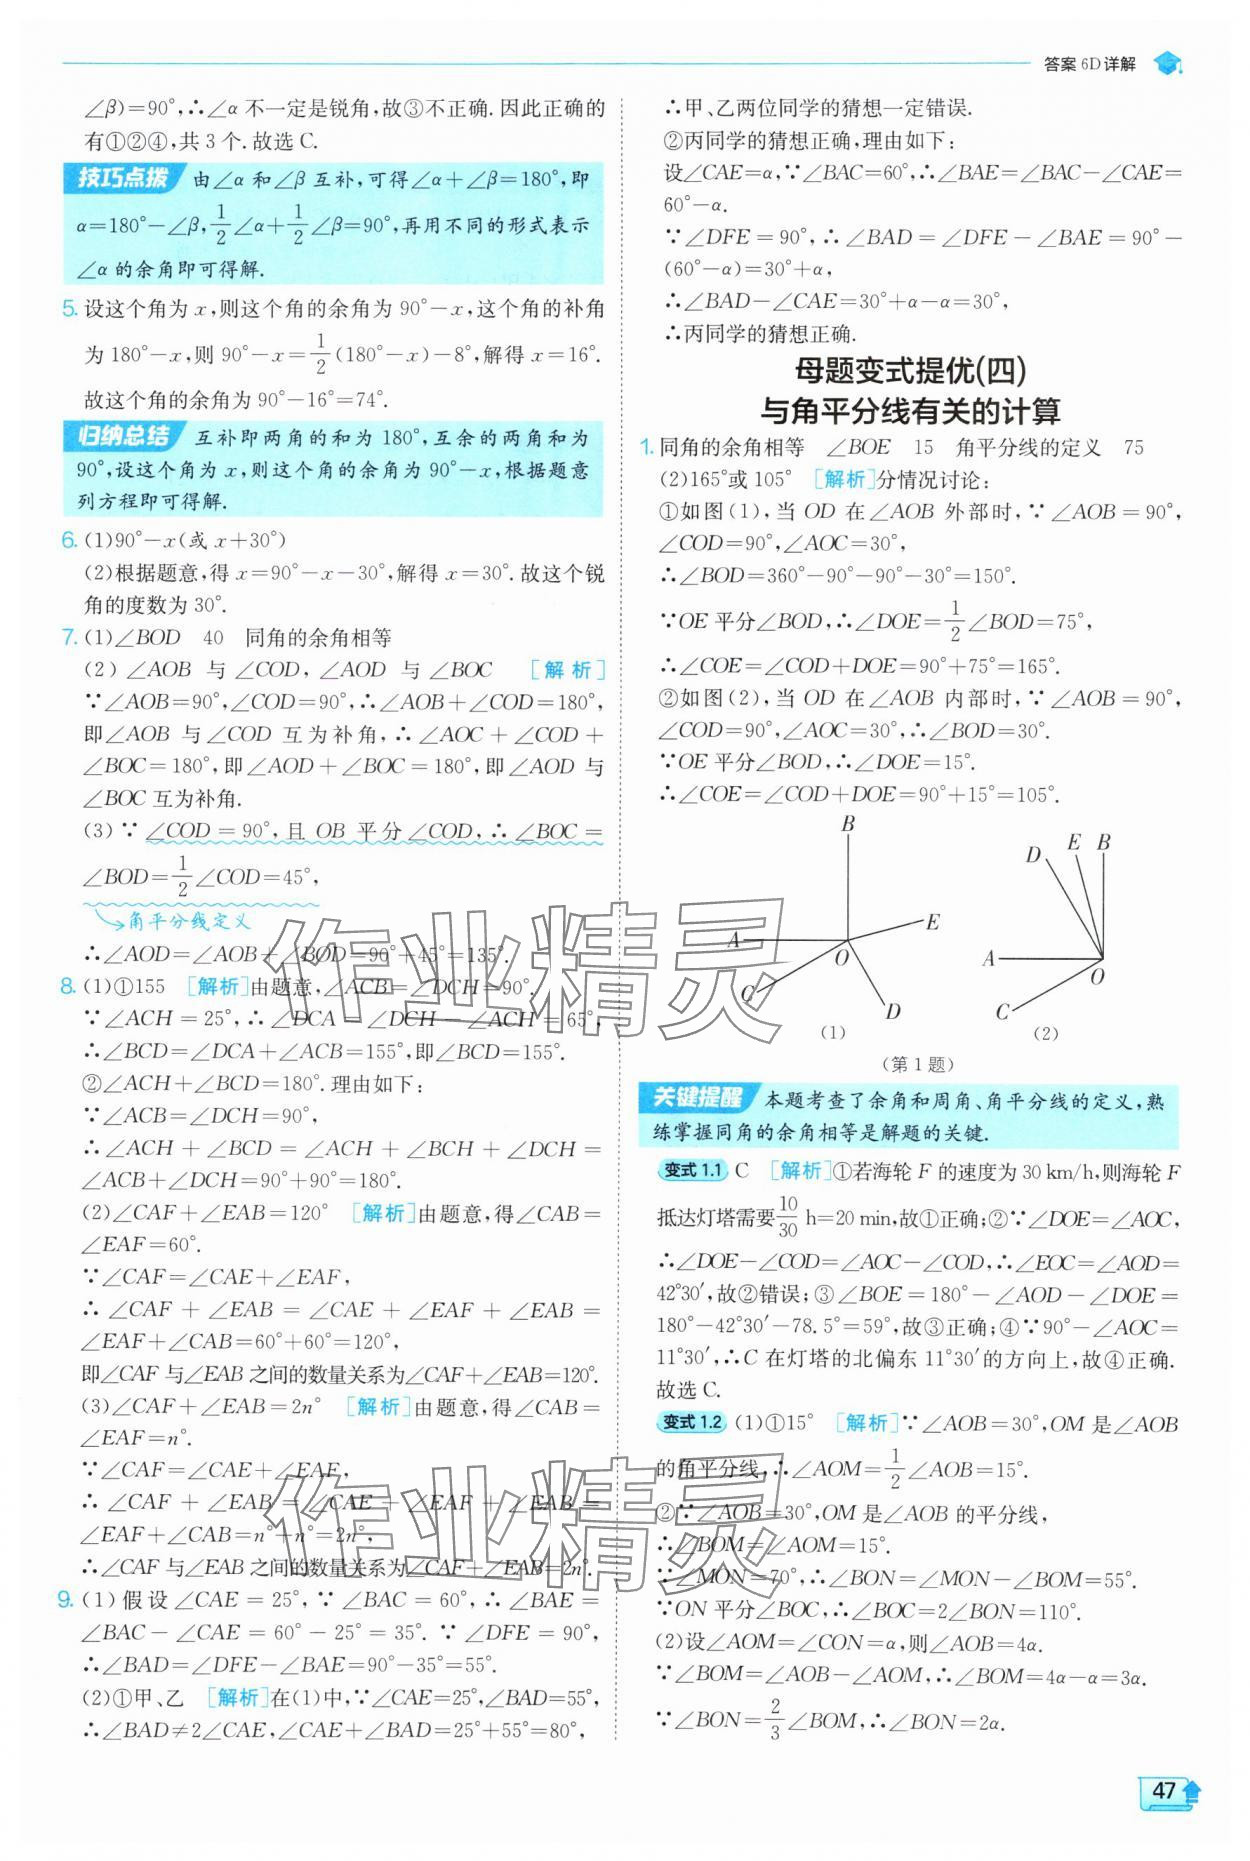 答案 6D 详解
∠β)=90°,∴∠α 不一定是锐角,故③不正确.因此正确的
有①②④,共 3 个.故选 C.
技巧点拨 由∠α 和∠β 互补,可得∠α+∠β=180°,即
α=180°-∠β,1/2∠α+1/2∠β=90°,再用不同的形式表示
∠α 的余角即可得解.
5. 设这个角为 x,则这个角的余角为 90°-x,这个角的补角
为 180°-x,则 90°-x=1/2(180°-x)-8°,解得 x=16°.
故这个角的余角为 90°-16°=74°.
归纳总结 互补即两角的和为 180°,互余的两角和为
90°,设这个角为 x,则这个角的余角为 90°-x,根据题意
列方程即可得解.
6. (1)90°-x(或 x+30°)
(2)根据题意,得 x=90°-x-30°,解得 x=30°.故这个锐
角的度数为 30°.
7. (1)∠BOD 40 同角的余角相等
(2) ∠AOB 与 ∠COD, ∠AOD 与 ∠BOC [解析]
∵∠AOB=90°,∠COD=90°,∴∠AOB+∠COD=180°,
即∠AOB 与∠COD 互为补角,∴∠AOC+∠COD+
∠BOC=180°,即∠AOD+∠BOC=180°,即∠AOD 与
∠BOC 互为补角.
(3)∵∠COD=90°,且 OB 平分∠COD,∴∠BOC=
∠BOD=1/2∠COD=45°,
角平分线定义
∴∠AOD=∠AOB+∠BOD=90°+45°=135°.
8. (1)①155 [解析]由题意,∠ACB=∠DCH=90°.
∵∠ACH=25°,∴∠DCA=∠DCH-∠ACH=65°,
∴∠BCD=∠DCA+∠ACB=155°,即∠BCD=155°.
②∠ACH+∠BCD=180°.理由如下:
∵∠ACB=∠DCH=90°,
∴∠ACH+∠BCD=∠ACH+∠BCH+∠DCH=
∠ACB+∠DCH=90°+90°=180°.
(2)∠CAF+∠EAB=120° [解析]由题意,得∠CAB=
∠EAF=60°.
∵∠CAF=∠CAE+∠EAF,
∴∠CAF+∠EAB=∠CAE+∠EAF+∠EAB=
∠EAF+∠CAB=60°+60°=120°,
即∠CAF 与∠EAB 之间的数量关系为∠CAF+∠EAB=120°.
(3)∠CAF+∠EAB=2n° [解析]由题意,得∠CAB=
∠EAF=n°.
∵∠CAF=∠CAE+∠EAF,
∴∠CAF+∠EAB=∠CAE+∠EAF+∠EAB=
∠EAF+∠CAB=n°+n°=2n°,
∴∠CAF 与∠EAB 之间的数量关系为∠CAF+∠EAB=2n°.
9. (1)假设∠CAE=25°,∵∠BAC=60°,∴∠BAE=
∠BAC-∠CAE=60°-25°=35°.∵∠DFE=90°,
∴∠BAD=∠DFE-∠BAE=90°-35°=55°.
(2)①甲、乙 [解析]在(1)中,∵∠CAE=25°,∠BAD=55°,
∴∠BAD≠2∠CAE,∠CAE+∠BAD=25°+55°=80°,
∴甲、乙两位同学的猜想一定错误.
②丙同学的猜想正确,理由如下:
设∠CAE=α,∵∠BAC=60°,∴∠BAE=∠BAC-∠CAE=
60°-α.
∵∠DFE=90°,∴∠BAD=∠DFE-∠BAE=90°-
(60°-α)=30°+α,
∴∠BAD-∠CAE=30°+α-α=30°,
∴丙同学的猜想正确.
母题变式提优(四)
与角平分线有关的计算
1. 同角的余角相等 ∠BOE 15 角平分线的定义 75
(2)165°或 105° [解析]分情况讨论:
①如图(1),当 OD 在∠AOB 外部时,∵∠AOB=90°,
∠COD=90°,∠AOC=30°,
∴∠BOD=360°-90°-90°-30°=150°.
∵OE 平分∠BOD,∴∠DOE=1/2∠BOD=75°,
∴∠COE=∠COD+DOE=90°+75°=165°.
②如图(2),当 OD 在∠AOB 内部时,∵∠AOB=90°,
∠COD=90°,∠AOC=30°,∴∠BOD=30°.
∵OE 平分∠BOD,∴∠DOE=15°.
∴∠COE=∠COD+DOE=90°+15°=105°.
B
D E B
A E
O
C D
A
O
C
(1) (2)
(第 1 题)
关键提醒 本题考查了余角和周角、角平分线的定义,熟
练掌握同角的余角相等是解题的关键.
变式 1.1 C [解析]①若海轮 F 的速度为 30 km/h,则海轮 F
抵达灯塔需要10/30 h=20 min,故①正确;②∵∠DOE=∠AOC,
∴∠DOE-∠COD=∠AOC-∠COD,∴∠EOC=∠AOD=
42°30′,故②错误;③∠BOE=180°-∠AOD-∠DOE=
180°-42°30′-78.5°=59°,故③正确;④∵90°-∠AOC=
11°30′,∴C 在灯塔的北偏东 11°30′的方向上,故④正确.
故选 C.
变式 1.2 (1)①15° [解析]∵∠AOB=30°,OM 是∠AOB
的角平分线,∴∠AOM=1/2∠AOB=15°.
②∵∠AOB=30°,OM 是∠AOB 的平分线,
∴∠BOM=∠AOM=15°.
∵∠MON=70°,∴∠BON=∠MON-∠BOM=55°.
∵ON 平分∠BOC,∴∠BOC=2∠BON=110°.
(2)设∠AOM=∠CON=α,则∠AOB=4α.
∵∠BOM=∠AOB-∠AOM,∴∠BOM=4α-α=3α.
∵∠BON=2/3∠BOM,∴∠BON=2α.
47
作业精灵
作业精灵